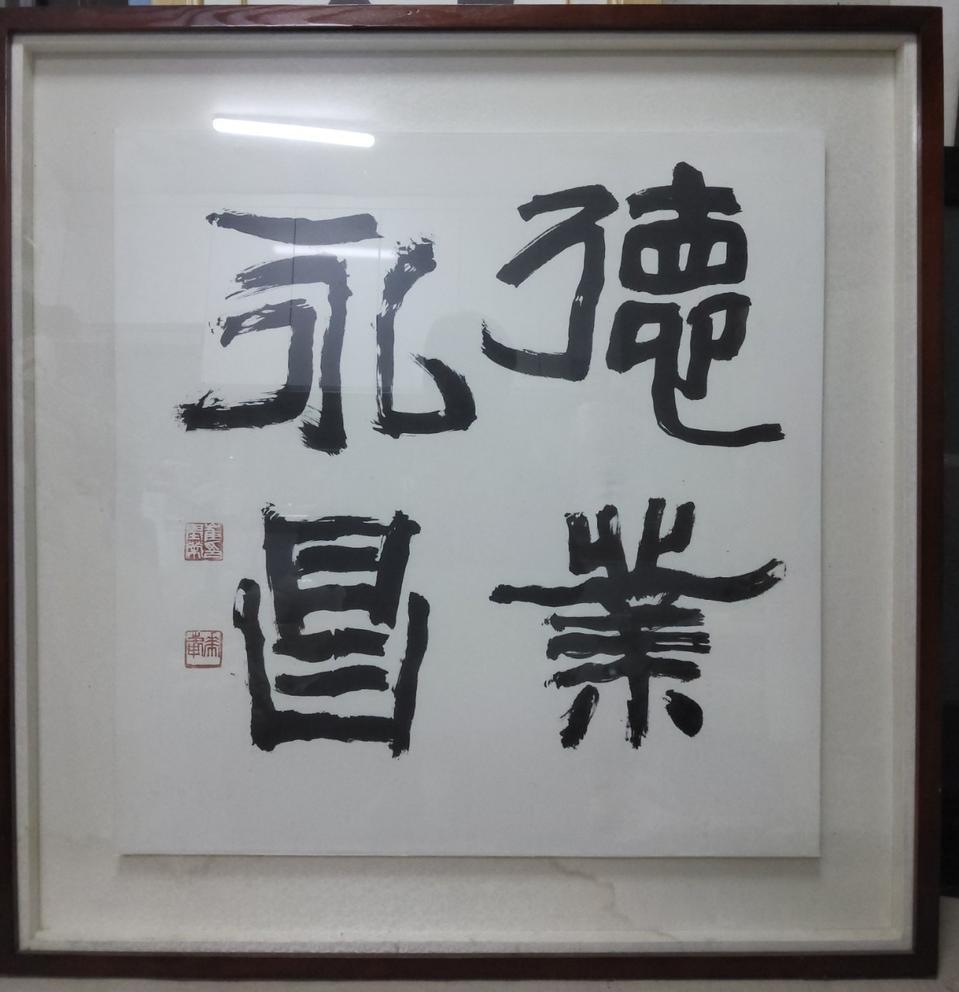 德業
永昌